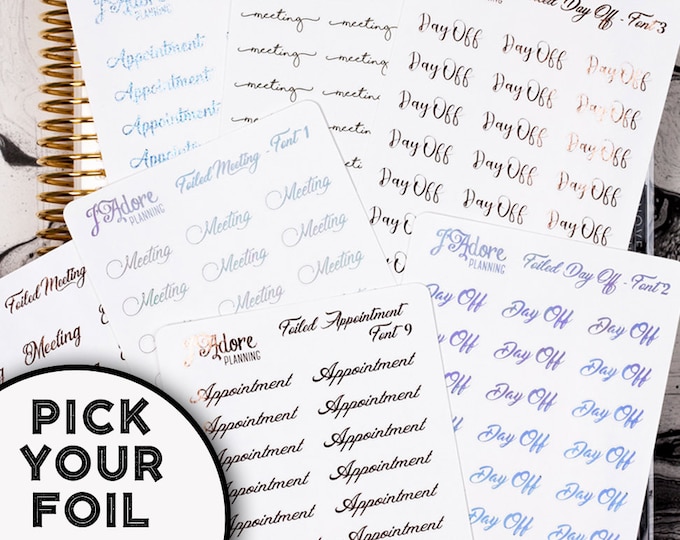 Appointment
Appointment
Appointment
Appointment
meeting
meeting meeting
meeting meeting
meeting meeting
meeting
Foiled Day Off - Font 3
Day Off Day Off Day Off
Day Off Day Off Day Off
Day Off Day Off Day Off
Day Off Day Off Day Off
Day Off Day Off Day Off
Day Off Day Off
Day Off
J'Adore
PLANNING
Foiled Meeting - Font 1
Meeting Meeting Meeting
Meeting Meeting Meeting
Meeting Meeting Meeting
Foiled Meeting
Meeting
J'Adore
PLANNING
Foiled Day Off - Font 2
Day Off Day Off Day Off
Day Off Day Off Day Off
Day Off Day Off Day Off
Day Off Day Off Day Off
Day Off Day Off Day Off
Day Off Day Off Day Off
Day Off Day Off
J'Adore
PLANNING
Foiled Appointment
Font 9
Appointment Appointment
Appointment Appointment
Appointment Appointment
Appointment Appointment
Appointment Appointment
Appointment
PICK
YOUR
FOIL